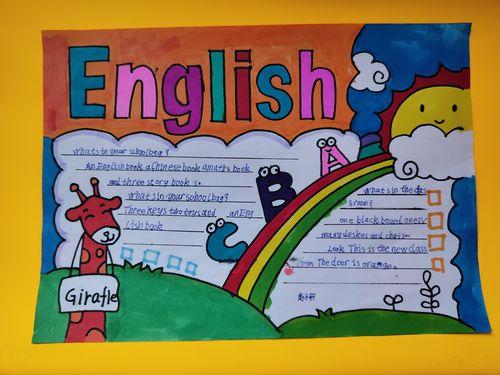 English
What's in your schoolbag?
An English book a Chinese book a maths book
and three story book s.
What's in your schoolbag?
Three keys two toys and an Eng
Lish book
A
B
C
What's in the clas
Groom?
one blackboard one
many deskes and chais
Look This is the new class
room The door is orange.
Girafle